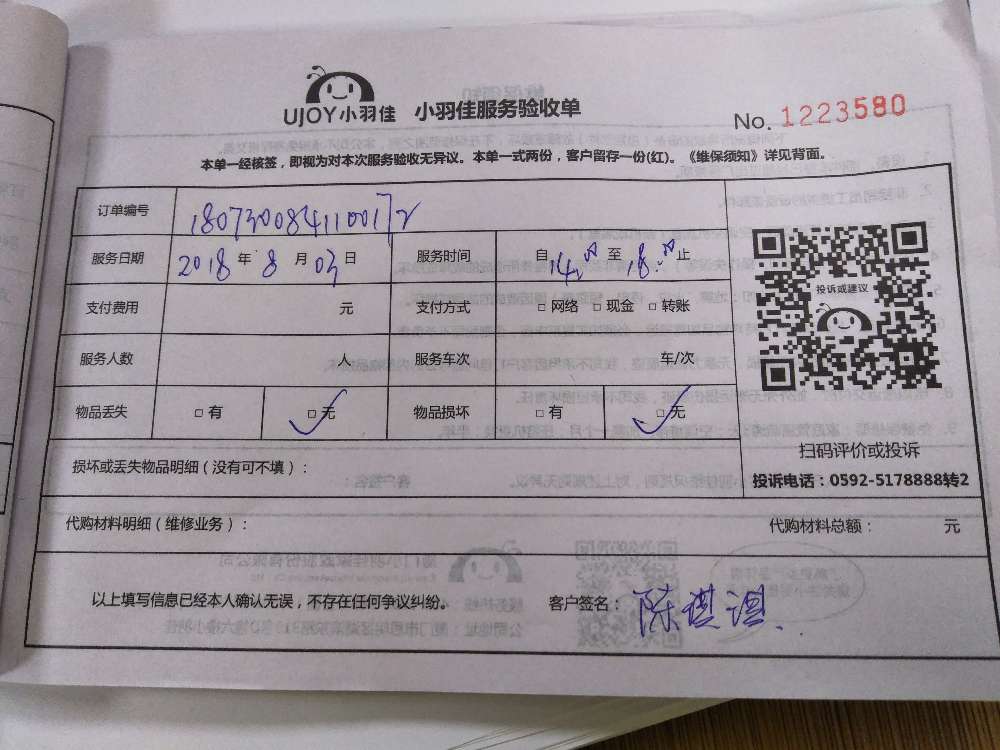 UJOY小羽佳 小羽佳服务验收单
No. 1223580
本单一经核签，即视为对本次服务验收无异议。本单一式两份，客户留存一份(红)。《维保须知》详见背面。
订单编号 1807300841100172
服务日期 2018年8月03日 服务时间 自14:00至18:00止
支付费用 元 支付方式 □网络 □现金 □转账
服务人数 人 服务车次 车/次
物品丢失 □有 □无 物品损坏 □有 □无
投诉或建议
扫码评价或投诉
投诉电话：0592-5178888转2
损坏或丢失物品明细（没有可不填）：
代购材料明细（维修业务）： 代购材料总额： 元
以上填写信息已经本人确认无误，不存在任何争议纠纷。 客户签名：陈